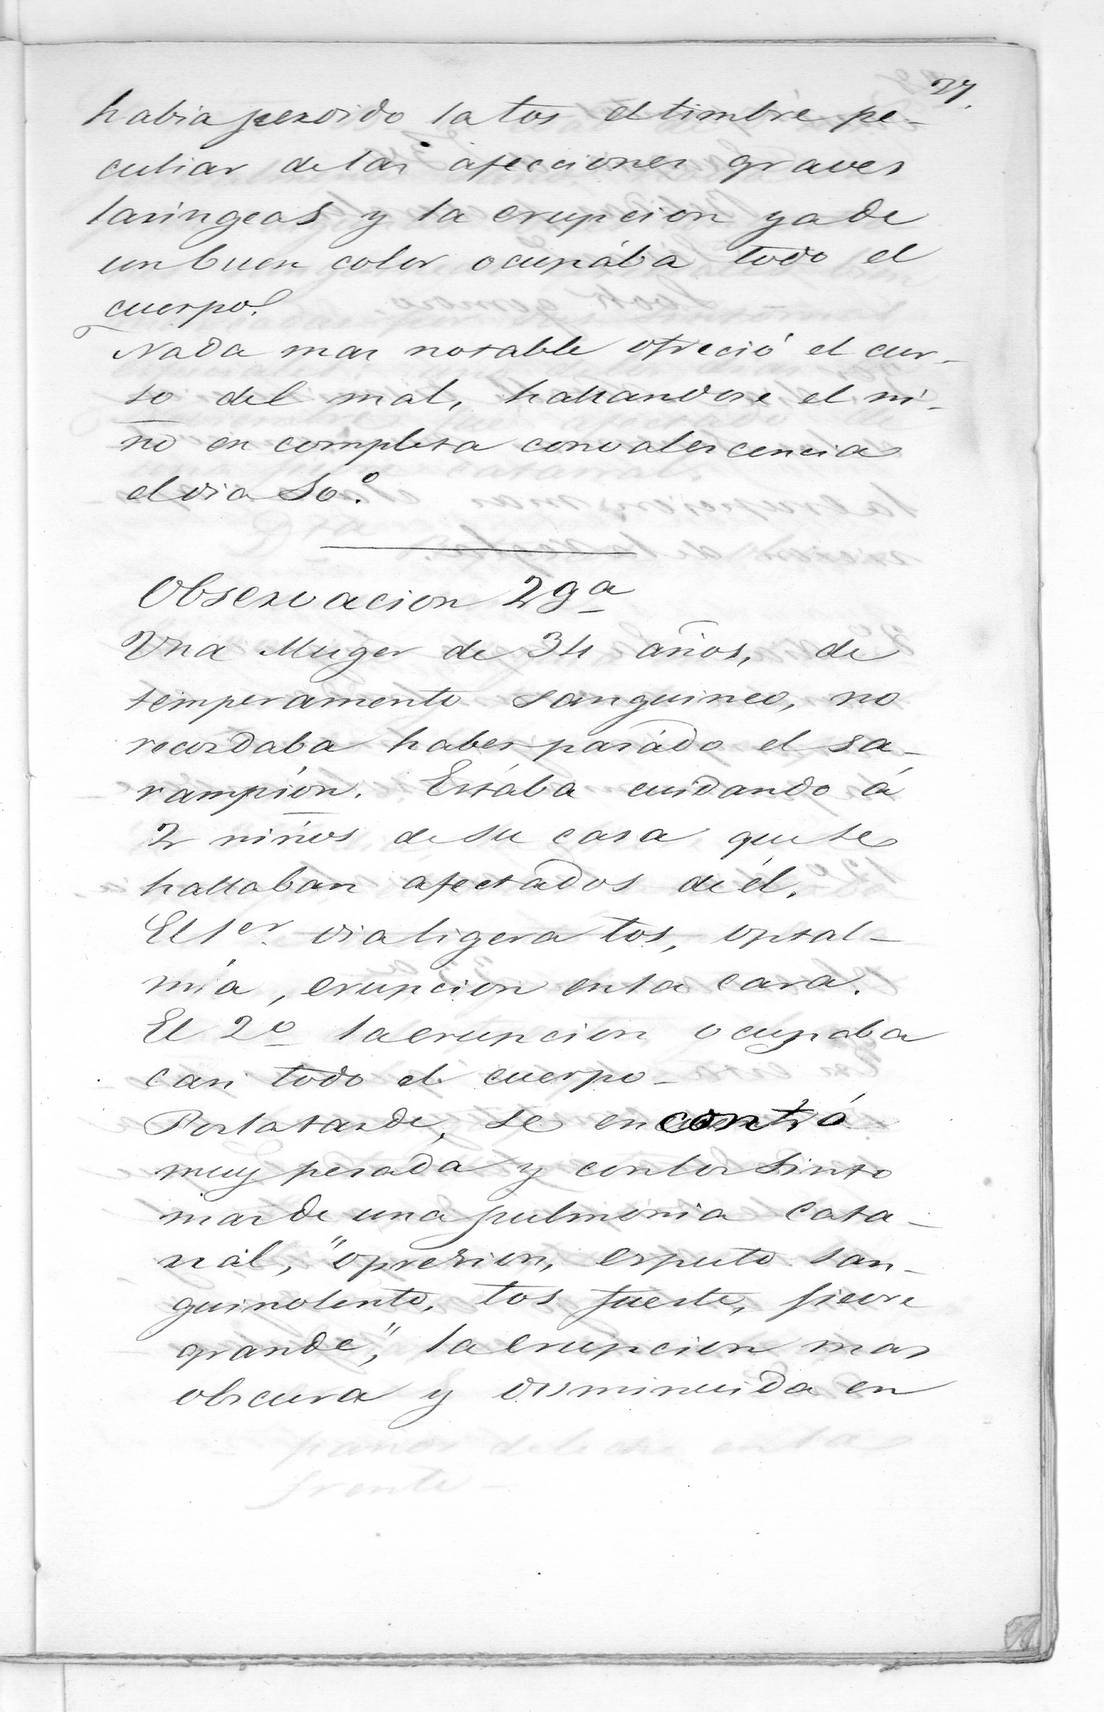 27.
habia perdido la tos el timbre pe-
culiar de las afecciones graves
laringeas y la erupcion ya de
un buen color ocupába todo el
cuerpo.
Nada mas notable ofreció el cur-
so del mal, hallandose el ni-
ño en completa convalescencia
el dia 10.º
Observacion 29ª
Una Muger de 34 años, de
temperamento sanguineo, no
recordaba haber pasádo el sa-
rampión. Estába cuidando á
2 niños de su casa que se
hallaban afectados de él.
El 1er. dia ligera tos, optal-
mía, erupcion en la cara.
El 2º la erupcion ocupaba
casi todo el cuerpo-
Por la tarde, se encontró
muy pesada y con los sinto
mas de una pulmonia cata-
rral, "opresion, esputo san-
guinolento, tos fuerte, fievre
grande", la erupcion mas
obscura y disminuida en